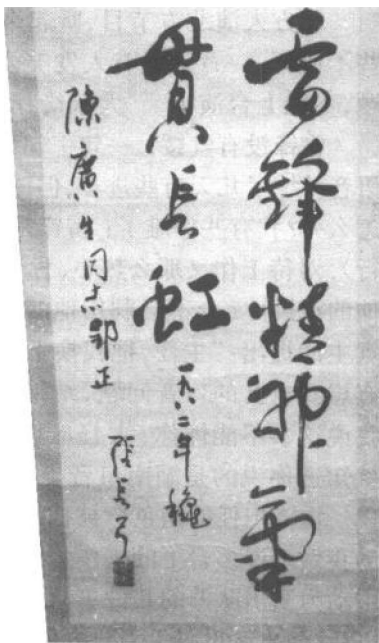 雷鋒精神氣
貫長虹
一九八二年穐
張長弓
陳廣生同志郢正